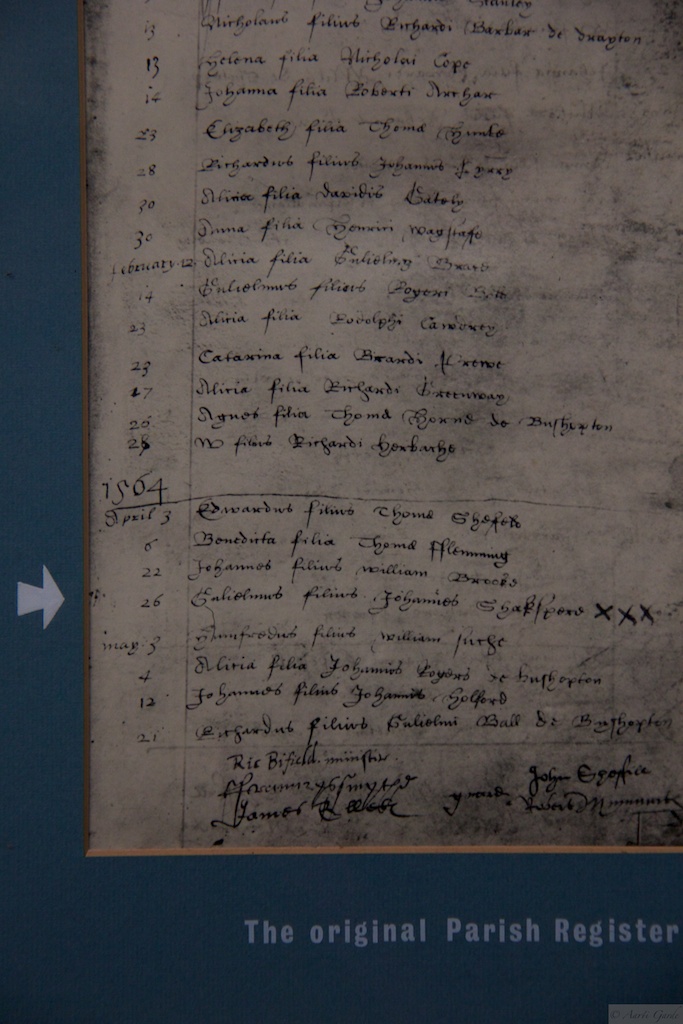 Stanley
13 Nicholaus filius Richardi Barbar de drayton
13 Helena filia Nicholai Cope
14 Johanna filia Roberti Archar
23 Elizabeth filia Thoma
28 Richardus filius Johannis
30 Alicia filia davidis Gately
30 Anna filia Henrici wagstaffe
february 12 Alicia filia
14 Gulielmus filius Rogeri
23 Alicia filia Rodolphi Cawdrey
23 Catarina filia Ricardi
17 Alicia filia Richardi Greenway
20 Agnes filia Thoma Horne de Bushopton
28 W filius Richardi Herbache
1564
April 3 Edwardus filius Thoma Shefeld
6 Benedicta filia Thoma fflemming
22 Johannes filius william Brooks
26 Gulielmus filius Johannes Shakspere XXX
may 3 Humfredus filius william
4 Alicia filia Johannis Rogers de bushopton
12 Johannes filius Johannis Holford
21 Richardus filius Gulielmi Ball de Bushopton
Ric Bifield minister
John
James
The original Parish Register